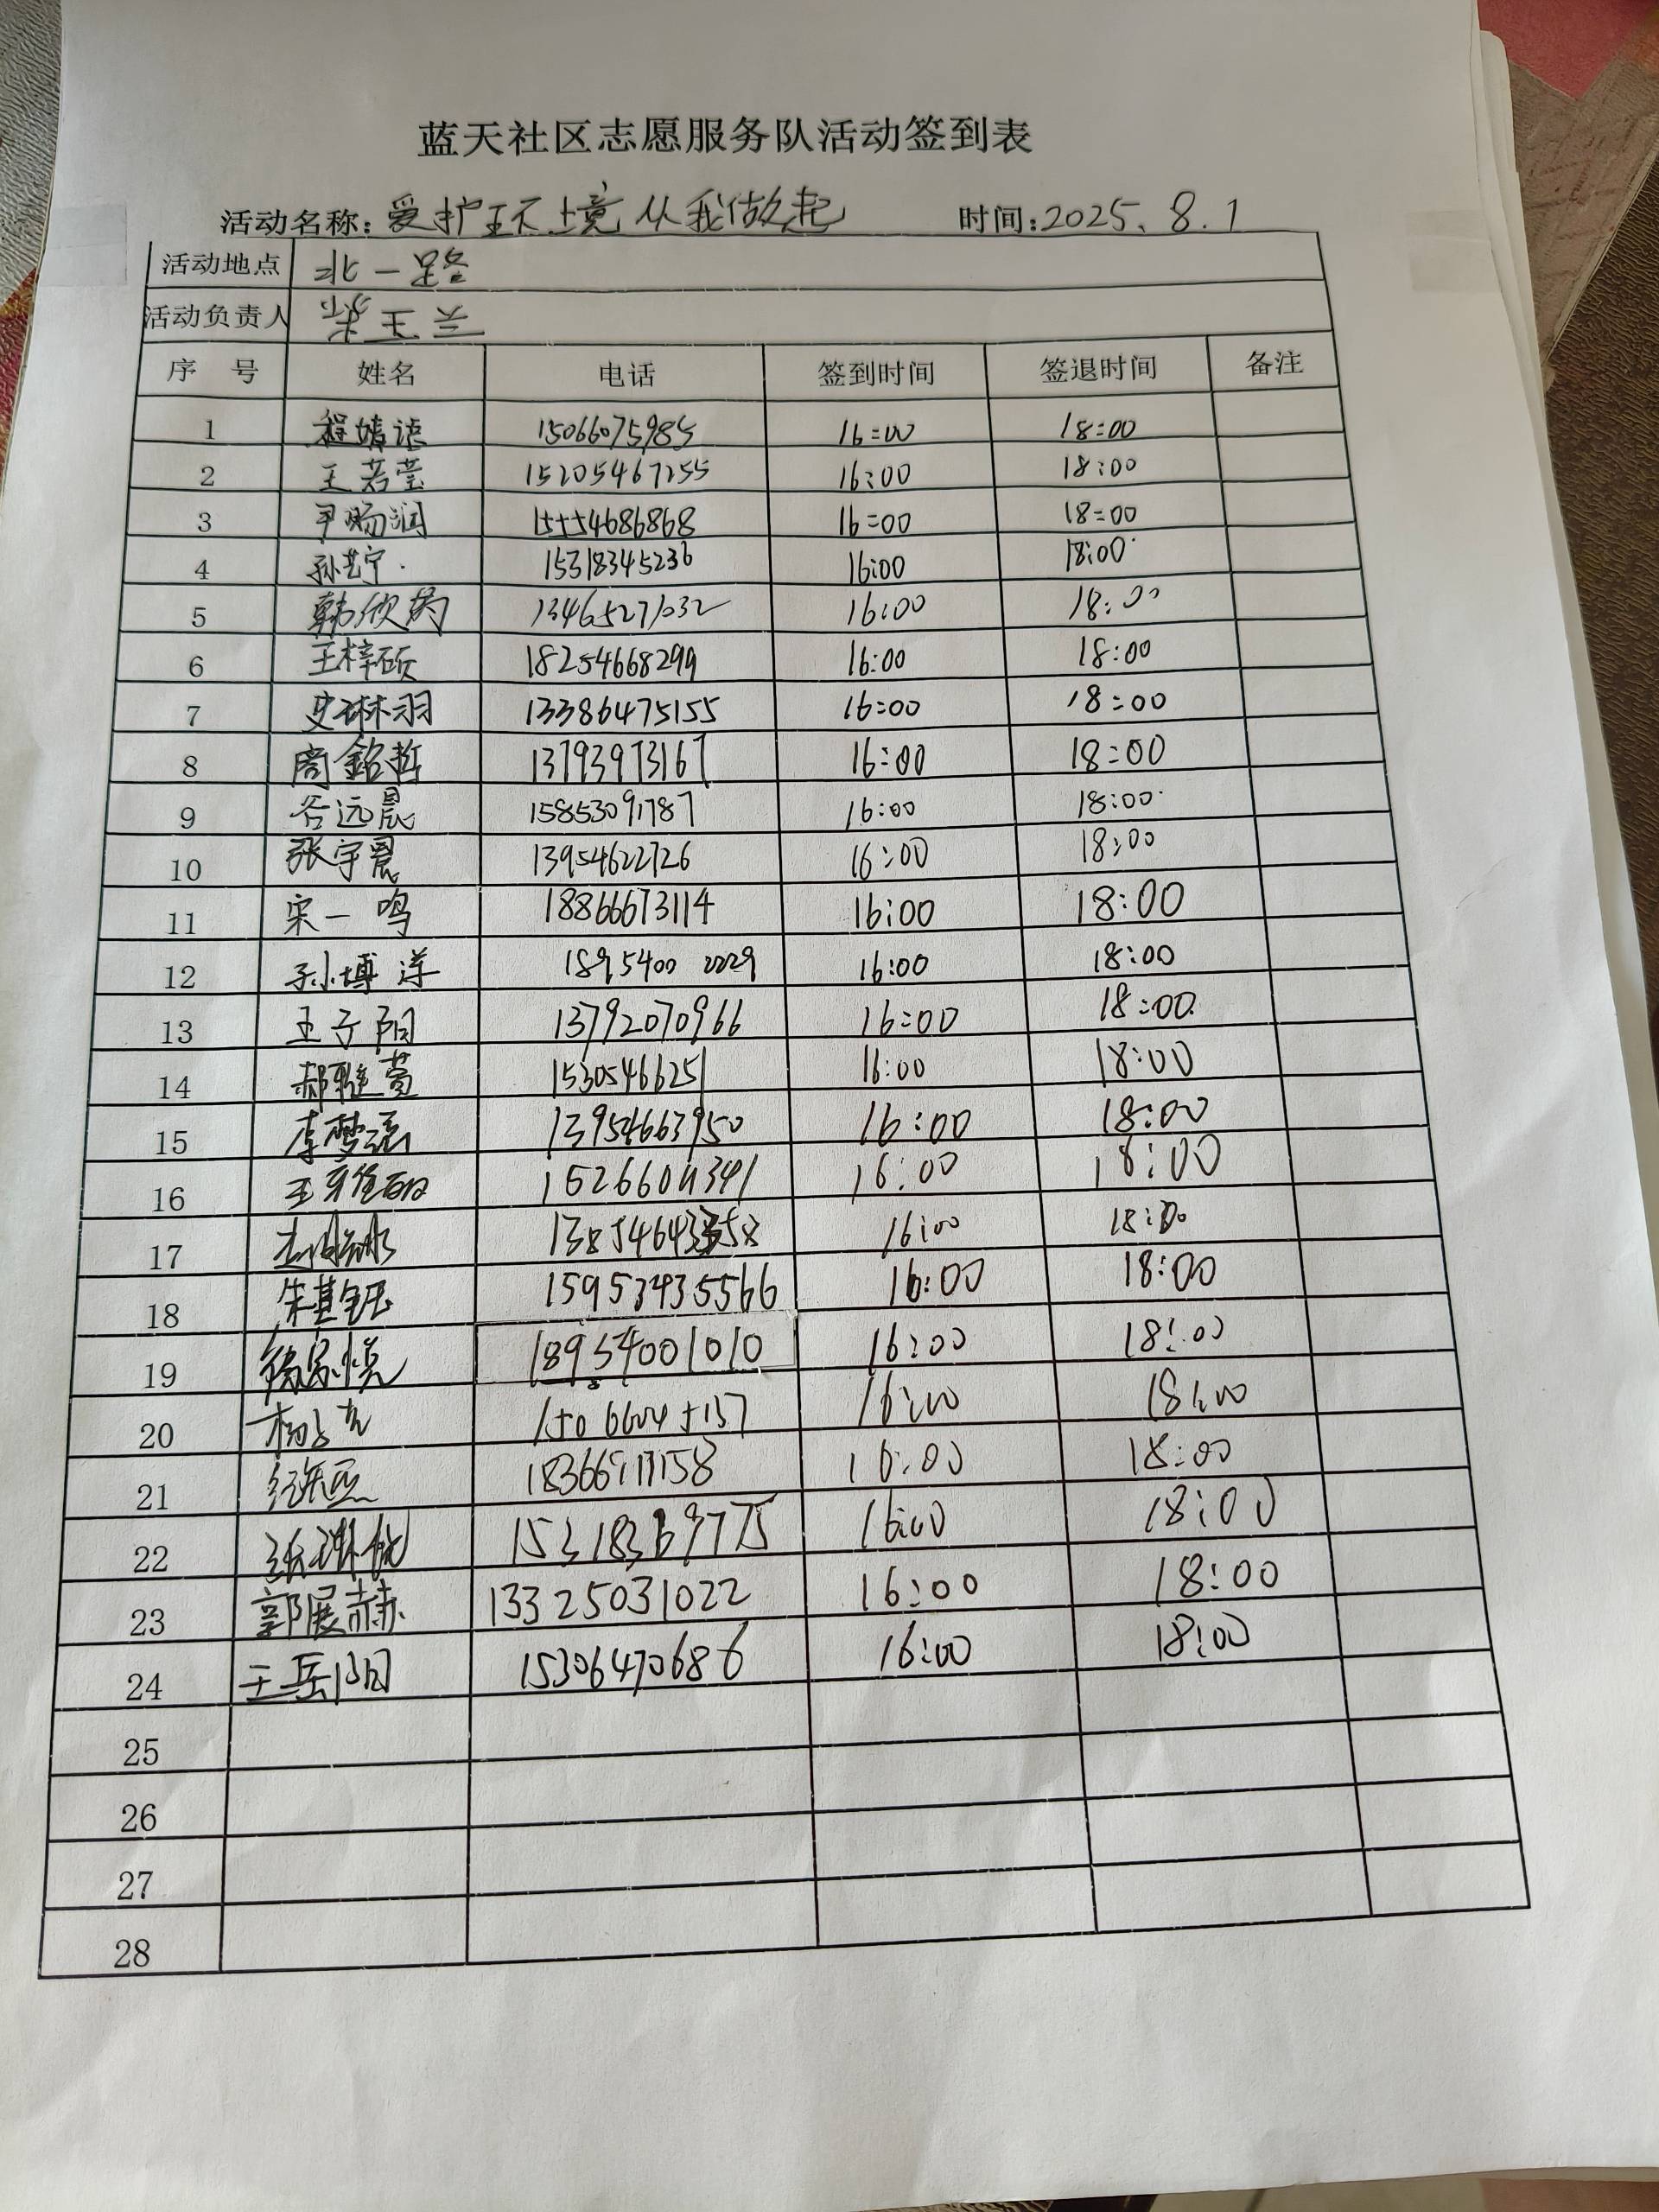 蓝天社区志愿服务队活动签到表
活动名称：爱护环境从我做起 时间：2025.8.1
活动地点 北一路
活动负责人
序号 姓名 电话 签到时间 签退时间 备注
1 程婧语 15066075985 16:00 18:00
2 王若莹 15205467255 16:00 18:00
3 15554686868 16:00 18:00
4 孙艺宁 15318345236 16:00 18:00
5 13465271032 16:00 18:00
6 王梓硕 18254668299 16:00 18:00
7 史琳羽 13386475155 16:00 18:00
8 商銘哲 13793973167 16:00 18:00
9 谷远晨 15853091787 16:00 18:00
10 张宇晨 13954622726 16:00 18:00
11 宋一鸣 18866673114 16:00 18:00
12 孙博洋 18954002029 16:00 18:00
13 王子阳 13792070966 16:00 18:00
14 郝雅萱 15305466251 16:00 18:00
15 李梦瑶 13954663950 16:00 18:00
16 16:00 18:00
17 16:00 18:00
18 朱基钰 15953435566 16:00 18:00
19 徐梦悦 18954001010 16:00 18:00
20 16:00 18:00
21 16:00 18:00
22 15318369775 16:00 18:00
23 郭展赫 13325031022 16:00 18:00
24 王岳阳 15306470686 16:00 18:00
25
26
27
28